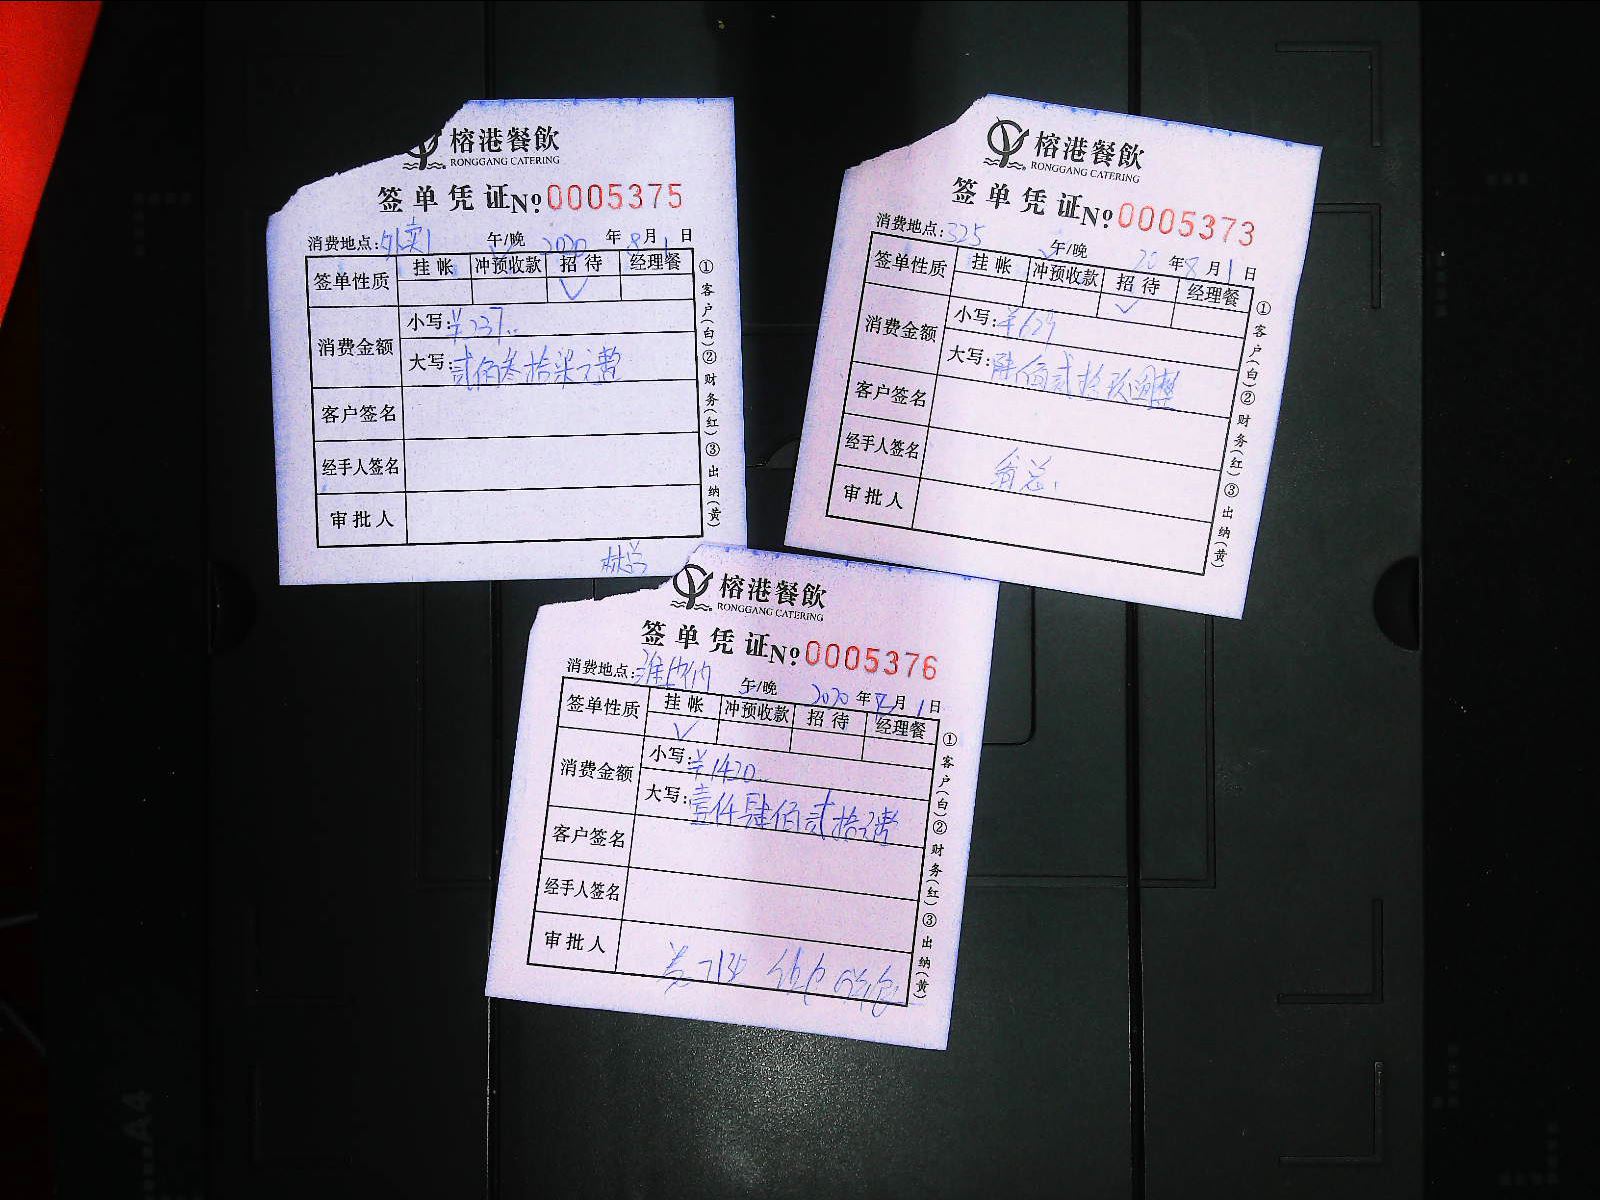 榕港餐飲
RONGGANG CATERING
签单凭证 No 0005375
消费地点:外卖1 午/晚 2020年8月1日
签单性质 挂帐 冲预收款 招待 经理餐
✓
消费金额 小写:¥237..
大写:贰佰叁拾柒元整
客户签名
经手人签名
审批人
林总
①客户(白)②财务(红)③出纳(黄)
榕港餐飲
RONGGANG CATERING
签单凭证 No 0005373
消费地点:325 午/晚 20年8月1日
签单性质 挂帐 冲预收款 招待 经理餐
✓
消费金额 小写:¥629
大写:陆佰贰拾玖圆整
客户签名
经手人签名 翁总.
审批人
①客户(白)②财务(红)③出纳(黄)
榕港餐飲
RONGGANG CATERING
签单凭证 No 0005376
消费地点: 午/晚 2020年8月1日
签单性质 挂帐 冲预收款 招待 经理餐
✓
消费金额 小写:¥1420..
大写:壹仟肆佰贰拾元整
客户签名
经手人签名
审批人
①客户(白)②财务(红)③出纳(黄)
A4